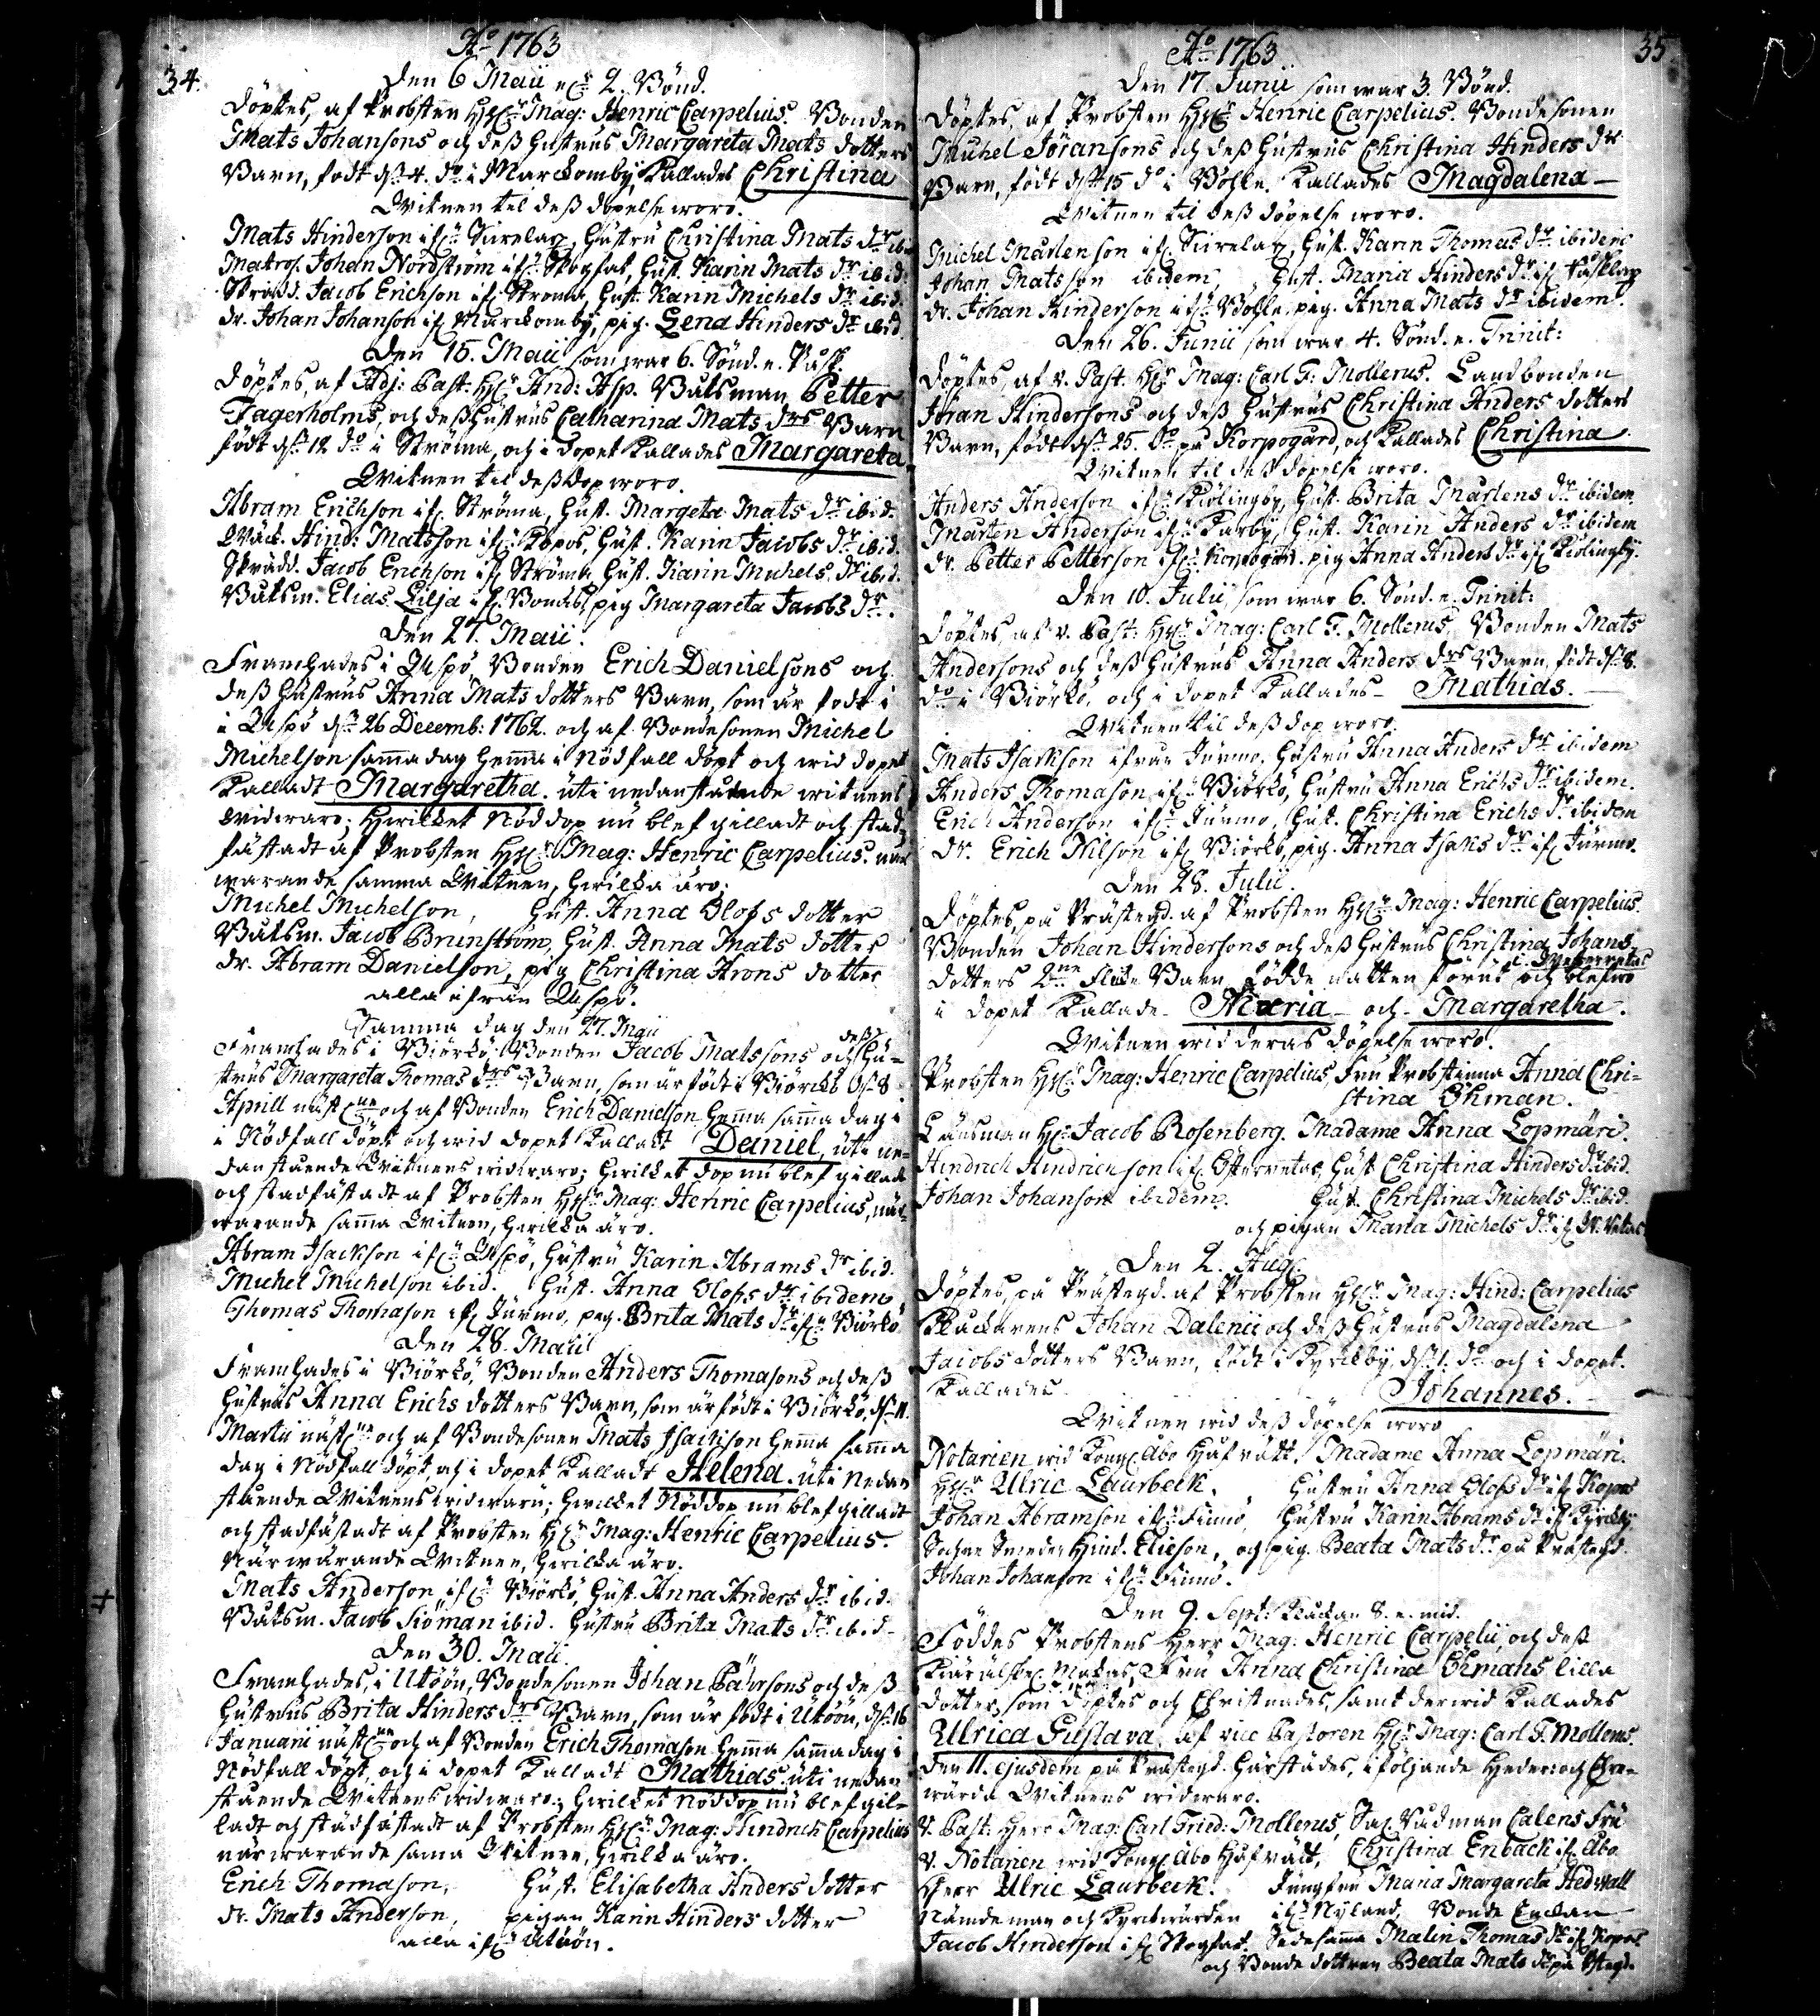 34.
Ao 1763
Den 6 Maii 2. Bönd.
Döptes, af Probsten H:r Mag: Henric Carpelius. Bonden
Mats Johansons och deß hustrus Margareta Mats dotters
Barn, födt d. 4. do i Marckomby, kallades Christina
Witnen til deß döpelse woro.
Mats Hinderson if:n Kirelax, hustru Christina Mats dr ib.
Matros. Johan Nordström if:n Skogfat, hust. Karin Mats dr ibid.
Skrädd. Jacob Erichson if. Ströma, hust. Karin Michels dr ibid.
dr. Johan Johanson if. Marckomby, pig. Lena Hinders dr ibid.
Den 15. Maii som war 6. Sönd. e. Påsk.
Döptes, af Adj: Past. H:r And: Asp. Båtsman Petter
Fagerholms, och deß hustrus Catharina Mats drs Barn
födt d. 12 do i Ströma, och i dopet kallades Margareta.
Witnen til deß dop woro.
Abram Erichson if. Ströma, hust. Margeta Mats dr ibid.
Hind: Matsson if. Kopos, hust. Karin Jacobs dr ibid.
Skrädd. Jacob Erichson if. Ströma, hust. Karin Michels dr ibid.
Båtsm. Elias Lilja if. pig Margareta Jacobs dr.
Den 27. Maii.
Framhades i Aspö, Bonden Erich Danielsons och
deß hustrus Anna Mats dotters Barn, som är födt i
i Aspö d. 26 Decemb: 1762. och af Bondesonen Michel
Michelson samma dag hemma i Nödfall döpt och wid dopet
kalladt Margaretha. uti nedanstående witnens
widwaro; hwilket Nöddop nu blef gilladt och stad-
fästadt af Probsten H:r Mag: Henric Carpelius. när
warande samma Witnen, hwilka äro:
Michel Michelson, Hust. Anna Olofs dotter
Båtsm. Jacob Brunström, Hust. Anna Mats dotter
dr. Abram Danielson, pig Christina Arons dotter
alla ifrån Aspö.
Samma dag den 27. Maii
Framhades i Biörkö, Bonden Jacob Matssons och deß hu-
strus Margareta Thomas drs Barn, som är födt i Biörckö d. 8
Aprill näst och af Bonden Erich Danielson hemma samma dag i
i Nödfall döpt och wid dopet kalladt Daniel, uti ne-
dan stående Witnens widwaro; hwilket dop nu blef gilladt
och stadfästadt af Probsten H:r Mag: Henric Carpelius, när-
warande samma Witnen, hwilka äro.
Abram Isackson if:n Aspö, Hustru Karin Abrams dr ibid.
Michel Michelson ibid. Hust. Anna Olofs dr ibidem
Thomas Thomason if. Jurmo, pig. Brita Mats dr if:n Biörkö
Den 28. Maii
Framhades i Biörkö, Bonden Anders Thomasons och deß
hustrus Anna Erichs dotters Barn, som är födt i Biörkö, d. 11.
Martii näst och af Bondesonen Mats Isackson hemma samma
dag i Nödfall döpt, och i dopet kalladt Helena. uti Nedan
stående Witnens widwaru; hwilket Nöddop nu blef gilladt
och stadfästadt af Probsten H:r Mag: Henric Carpelius.
Närwarande Witnen, hwilka äro.
Mats Anderson if:n Biörkö, Hust. Anna Anders dr ibid.
Båtsm. Jacob Siöman ibid. Hustru Brita Mats dr ibid.
Den 30. Maii.
Framhades, i Utöön, Bondesonen Johan Pährsons och deß
hustrus Brita Hinders drs Barn, som är födt i Utöön, d. 16
Januarii näst och af Bonden Erich Thomason hemma samma dag i
Nödfall döpt, och i dopet kalladt Mathias. uti nedan
stående Witnens widwaro; hwilket Nöddop nu blef gil-
ladt och stadfästadt af Probsten H:r Mag: Hindrich Carpelius
närwarande sama Witnen, hwilka äro.
Erich Thomason, Hust. Elisabetha Anders dotter
dr. Mats Anderson, pigan Karin Hinders dotter
alla if:n Utöön.
35
Ao 1763
Den 17. Junii som war 3. Bönd.
Döptes, af Probsten H:r Henric Carpelius. Bondesonen
Michel Jöransons och deß hustrus Christina Hinders dr
Barn, födt d. 15 do i kallades Magdalena
Witnen til deß döpelse woro.
Michel Mårtenson if. Kirelax, Hust. Karin Thomas dr. ibidem
Johan Matsson ibidem, Hust. Maria Hinders dr if.
dr. Johan Hinderson if:n pig. Anna Mats dr ibidem.
Den 26. Junii som war 4. Sönd. e. Trinit:
Döptes, af v. Past. H:r Mag: Carl F: Mollerus. Landbonden
Jöran Hindersons och deß hustrus Christina Anders dotters
Barn, födt d. 25. do på Korpogård, och kallades Christina.
Witnen til deß döpelse woro.
Anders Anderson if:n Hust. Brita Mårtens dr ibidem.
Mårten Anderson if:n Karby, Hust. Karin Anders dr ibidem
dr. Petter Petterson if:n Korpogård. pig Anna Anders dr if.
Den 10. Julii, som war 6. Sönd. e. Trinit:
Döptes, af v. Past: H:r Mag: Carl F. Mollerus, Bonden Mats
Andersons och deß hustrus Anna Anders drs Barn, födt d. 8.
do i Biörkö, och i dopet kallades Mathias.
Witnen til deß dop woro.
Mats Isackson ifrån Jurmo, Hustru Anna Anders dr ibidem
Anders Thomason if:n Biörkö, Hustru Anna Erichs dr ibidem.
Erich Anderson if:n Jurmo, Hust. Christina Erichs dr ibidem
dr. Erich Nilson if. Biörkö, pig. Anna Isaks dr if. Jurmo.
Den 28. Julii.
Döptes, på Prästegd. af Probsten H:r Mag: Henric Carpelius.
Bonden Johan Hindersons och deß hustrus Christina Johans
dotters 2ne Barn, födde natten förut i Westerretas och blefwo
i dopet kallade Maria och Margaretha.
Witnen wid deras döpelse woro.
Probsten H:r Mag: Henric Carpelius, Fru Probstinna Anna Chri-
stina Öhman.
Länsman H:r Jacob Rosenberg. Madame Anna Lopmäri.
Hindrich Hindrickson if. Österretas, Hust Christina Hinders dr ibid.
Johan Johanson ibidem. Hust. Christina Michels dr ibid.
och pigan Maria Michels dr if.
Den 2. Aug.
Döptes, på Prästegd. af Probsten H:r Mag: Hind: Carpelius
Klockarens Johan Dalenii och deß hustrus Magdalena
Jacobs dotters Barn, födt i Kyrckby, d. 1. do och i dopet
kallades Johannes.
Witnen wid deß döpelse woro
Notarien wid Kongl. Åbo Håfrätt. Madame Anna Lopmäri.
H:r Ulric Laurbeck. Hustru Anna Olofs dr if. Kopos
Johan Abramson if:n Finnö, Hustru Karin Abrams dr if. Kyrckby
Sockne Smeden Hind. Elieson, och pig. Beata Mats dr. på Prästegd.
Johan Johanson if:n Finnö.
Den 9. Sept: klockan 8. e. mid.
Föddes Probstens Herr Mag: Henric Carpelii och deß
Kiär älskl. Makas, Fru Anna Christina Öhmans lilla
dotter, som döptes och Christnades, samt derwid kallades
Ulrica Gustava, af vice Pastoren H:r Mag: Carl F. Mollerus.
den 11. ejusdem på Prästegd. härstädes, i följande Heder- och Ehre-
wärda Witnens widwaro.
V. Past: Herr Mag: Carl Fried: Mollerus, Rådman Calens Fru
V. Notarien wid Kongl. Åbo Håfrätt, Christina Enbäck if. Åbo.
Herr Ulric Laurbeck. Jungfru Maria Margareta Hedwall
Nämdeman och Kyrckwärden if:n Nyland, Bonde Enckan
Jacob Hinderson if. Skogfat. Malin Thomas dr if. Kopos
och Bonde dottren Beata Mats dr på